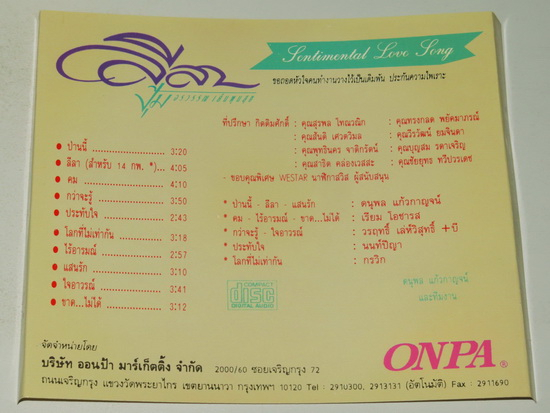 ลีลา
Sentimental Love Song
ขอถอดหัวใจคนทำงานวางไว้เป็นเดิมพัน ประกันความไพเราะ
ที่ปรึกษา กิตติมศักดิ์ : คุณสุรพล โทณวณิก : คุณทรงกลด พยัคมาภรณ์
: คุณสันติ เศวตวิมล : คุณวีรวัฒน์ ยมจินดา
: คุณพุทธินคร จาติกรัตน์ : คุณบุญสม รดาเจริญ
: คุณสาธิต คล่องเวสสะ : คุณชัยยุทธ ทวีปวรเดช
- ขอบคุณพิเศษ WESTAR นาฬิกาสวิส ผู้สนับสนุน
ป่านนี้ 3:20
ลีลา (สำหรับ 14 กพ. *)... 4:05
คม 4:10
กว่าจะรู้ 3:50
ประทับใจ 2:43
โลกที่ไม่เท่ากัน 3:18
ไร้อารมณ์ 2:57
แสนรัก 3:10
ใจอาวรณ์ 3:41
ขาด...ไม่ได้ 3:12
* ป่านนี้ - ลีลา - แสนรัก : ดนุพล แก้วกาญจน์
* คม - ไร้อารมณ์ - ขาด...ไม่ได้ : เรียม โอชารส
* กว่าจะรู้ - ใจอาวรณ์ : วรฤทธิ์ เลห์วิสุทธิ์ +บี
* ประทับใจ : นนท์ปัญา
* โลกที่ไม่เท่ากัน : กรวิก
COMPACT
disc
DIGITAL AUDIO
ดนุพล แก้วกาญจน์
และทีมงาน
จัดจำหน่ายโดย
บริษัท ออนป้า มาร์เก็ตติ้ง จำกัด 2000/60 ซอยเจริญกรุง 72
ONPA ®
ถนนเจริญกรุง แขวงวัดพระยาไกร เขตยานนาวา กรุงเทพฯ 10120 Tel : 2910300, 2913131 (อัตโนมัติ) Fax : 2911690